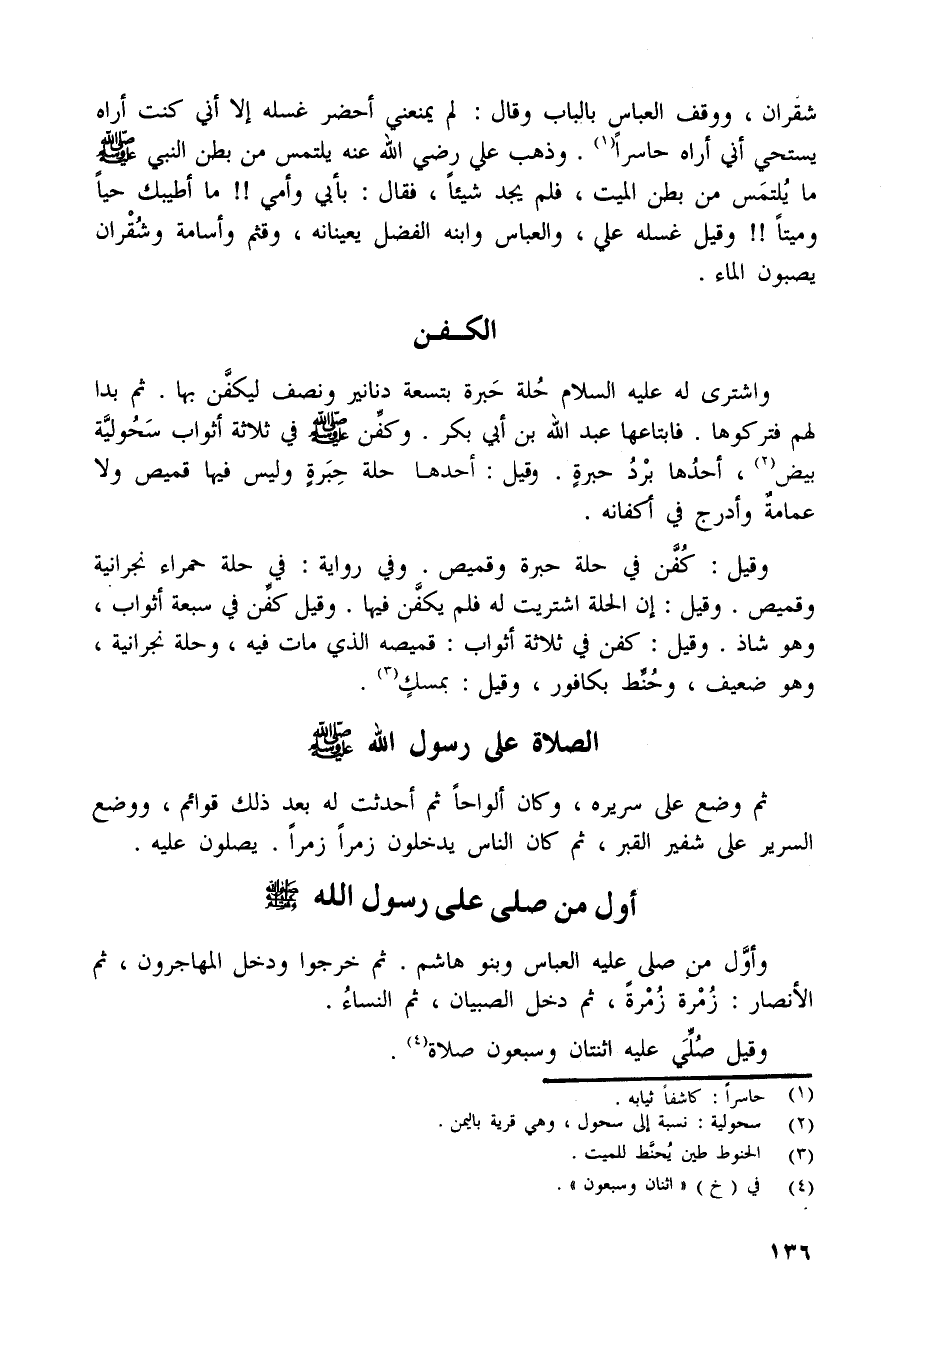 شقران ، ووقف العباس بالباب وقال : لم يمنعني أحضر غسله إلا أني كنت أراه
يستحي أني أراه حاسراً(١) . وذهب علي رضي الله عنه يلتمس من بطن النبي ﷺ
ما يُلتمَس من بطن الميت ، فلم يجد شيئاً ، فقال : بأبي وأمي !! ما أطيبك حياً
وميتاً !! وقيل غسله علي ، والعباس وابنه الفضل يعينانه ، وقثم وأسامة وشُقْران
يصبون الماء .
الكـفـن
واشترى له عليه السلام حُلة حَبرة بتسعة دنانير ونصف ليكفَّن بها . ثم بدا
لهم فتركوها . فابتاعها عبد الله بن أبي بكر . وكفِّن ﷺ في ثلاثة أثواب سَحُوليَّة
بيض(٢) ، أحدُها بُرْدُ حبرةٍ . وقيل : أحدهـا حلة حِبَرةٍ وليس فيها قميص ولا
عمامةٌ وأدرج في أكفانه .
وقيل : كُفَّن في حلة حبرة وقميص . وفي رواية : في حلة حمراء نجرانية
وقميص . وقيل : إن الحلة اشتريت له فلم يكفَّن فيها . وقيل كفِّن في سبعة أثواب ،
وهو شاذ . وقيل : كفن في ثلاثة أثواب : قميصه الذي مات فيه ، وحلة نجرانية ،
وهو ضعيف ، وحُنِّط بكافور ، وقيل : بمسكٍ(٣) .
الصلاة على رسول الله ﷺ
ثم وضع على سريره ، وكان ألواحاً ثم أحدثت له بعد ذلك قوائم ، ووضع
السرير على شفير القبر ، ثم كان الناس يدخلون زمراً زمراً . يصلون عليه .
أول من صلى على رسول الله ﷺ
وأوَّل من صلى عليه العباس وبنو هاشم . ثم خرجوا ودخل المهاجرون ، ثم
الأنصار : زُمْرة زُمْرةً ، ثم دخل الصبيان ، ثم النساءُ .
وقيل صُلِّيَ عليه اثنتان وسبعون صلاة(٤) .
(١) حاسراً : كاشفاً ثيابه .
(٢) سحولية : نسبة إلى سحول ، وهي قرية باليمن .
(٣) الحنوط طين يُحنَّط للميت .
(٤) في ( خ ) « اثنان وسبعون » .
١٣٦